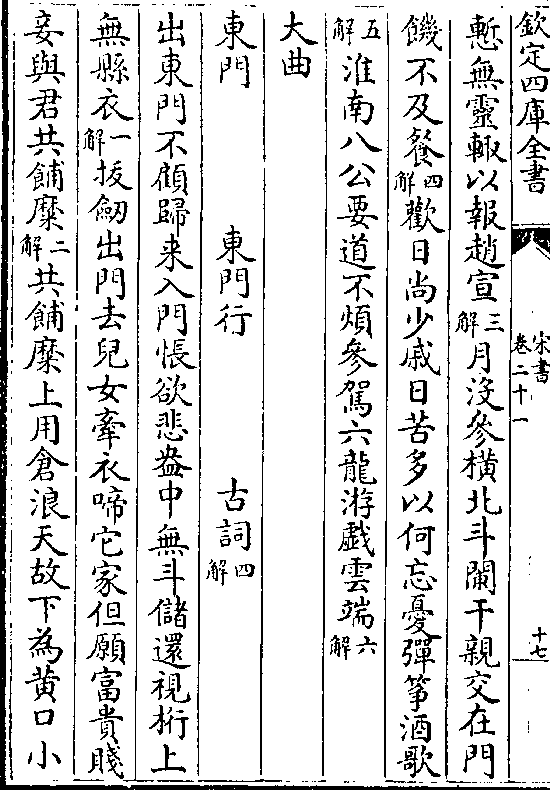 欽定四庫全書
宋書
卷二十一
十七
慙無靈輙以報趙宣三解月沒參橫北斗闌干親交在門
饑不及餐四解歡日尚少戚日苦多以何忘憂彈筝酒歌
五解淮南八公要道不煩參駕六龍游戯雲端六解
大曲
東門 東門行 古詞四解
出東門不顧歸来入門悵欲悲盎中無斗儲還視桁上
無縣衣一解拔劒出門去兒女牽衣啼它家但願富貴賤
妾與君共餔糜二解共餔糜上用倉浪天故下為黄口小